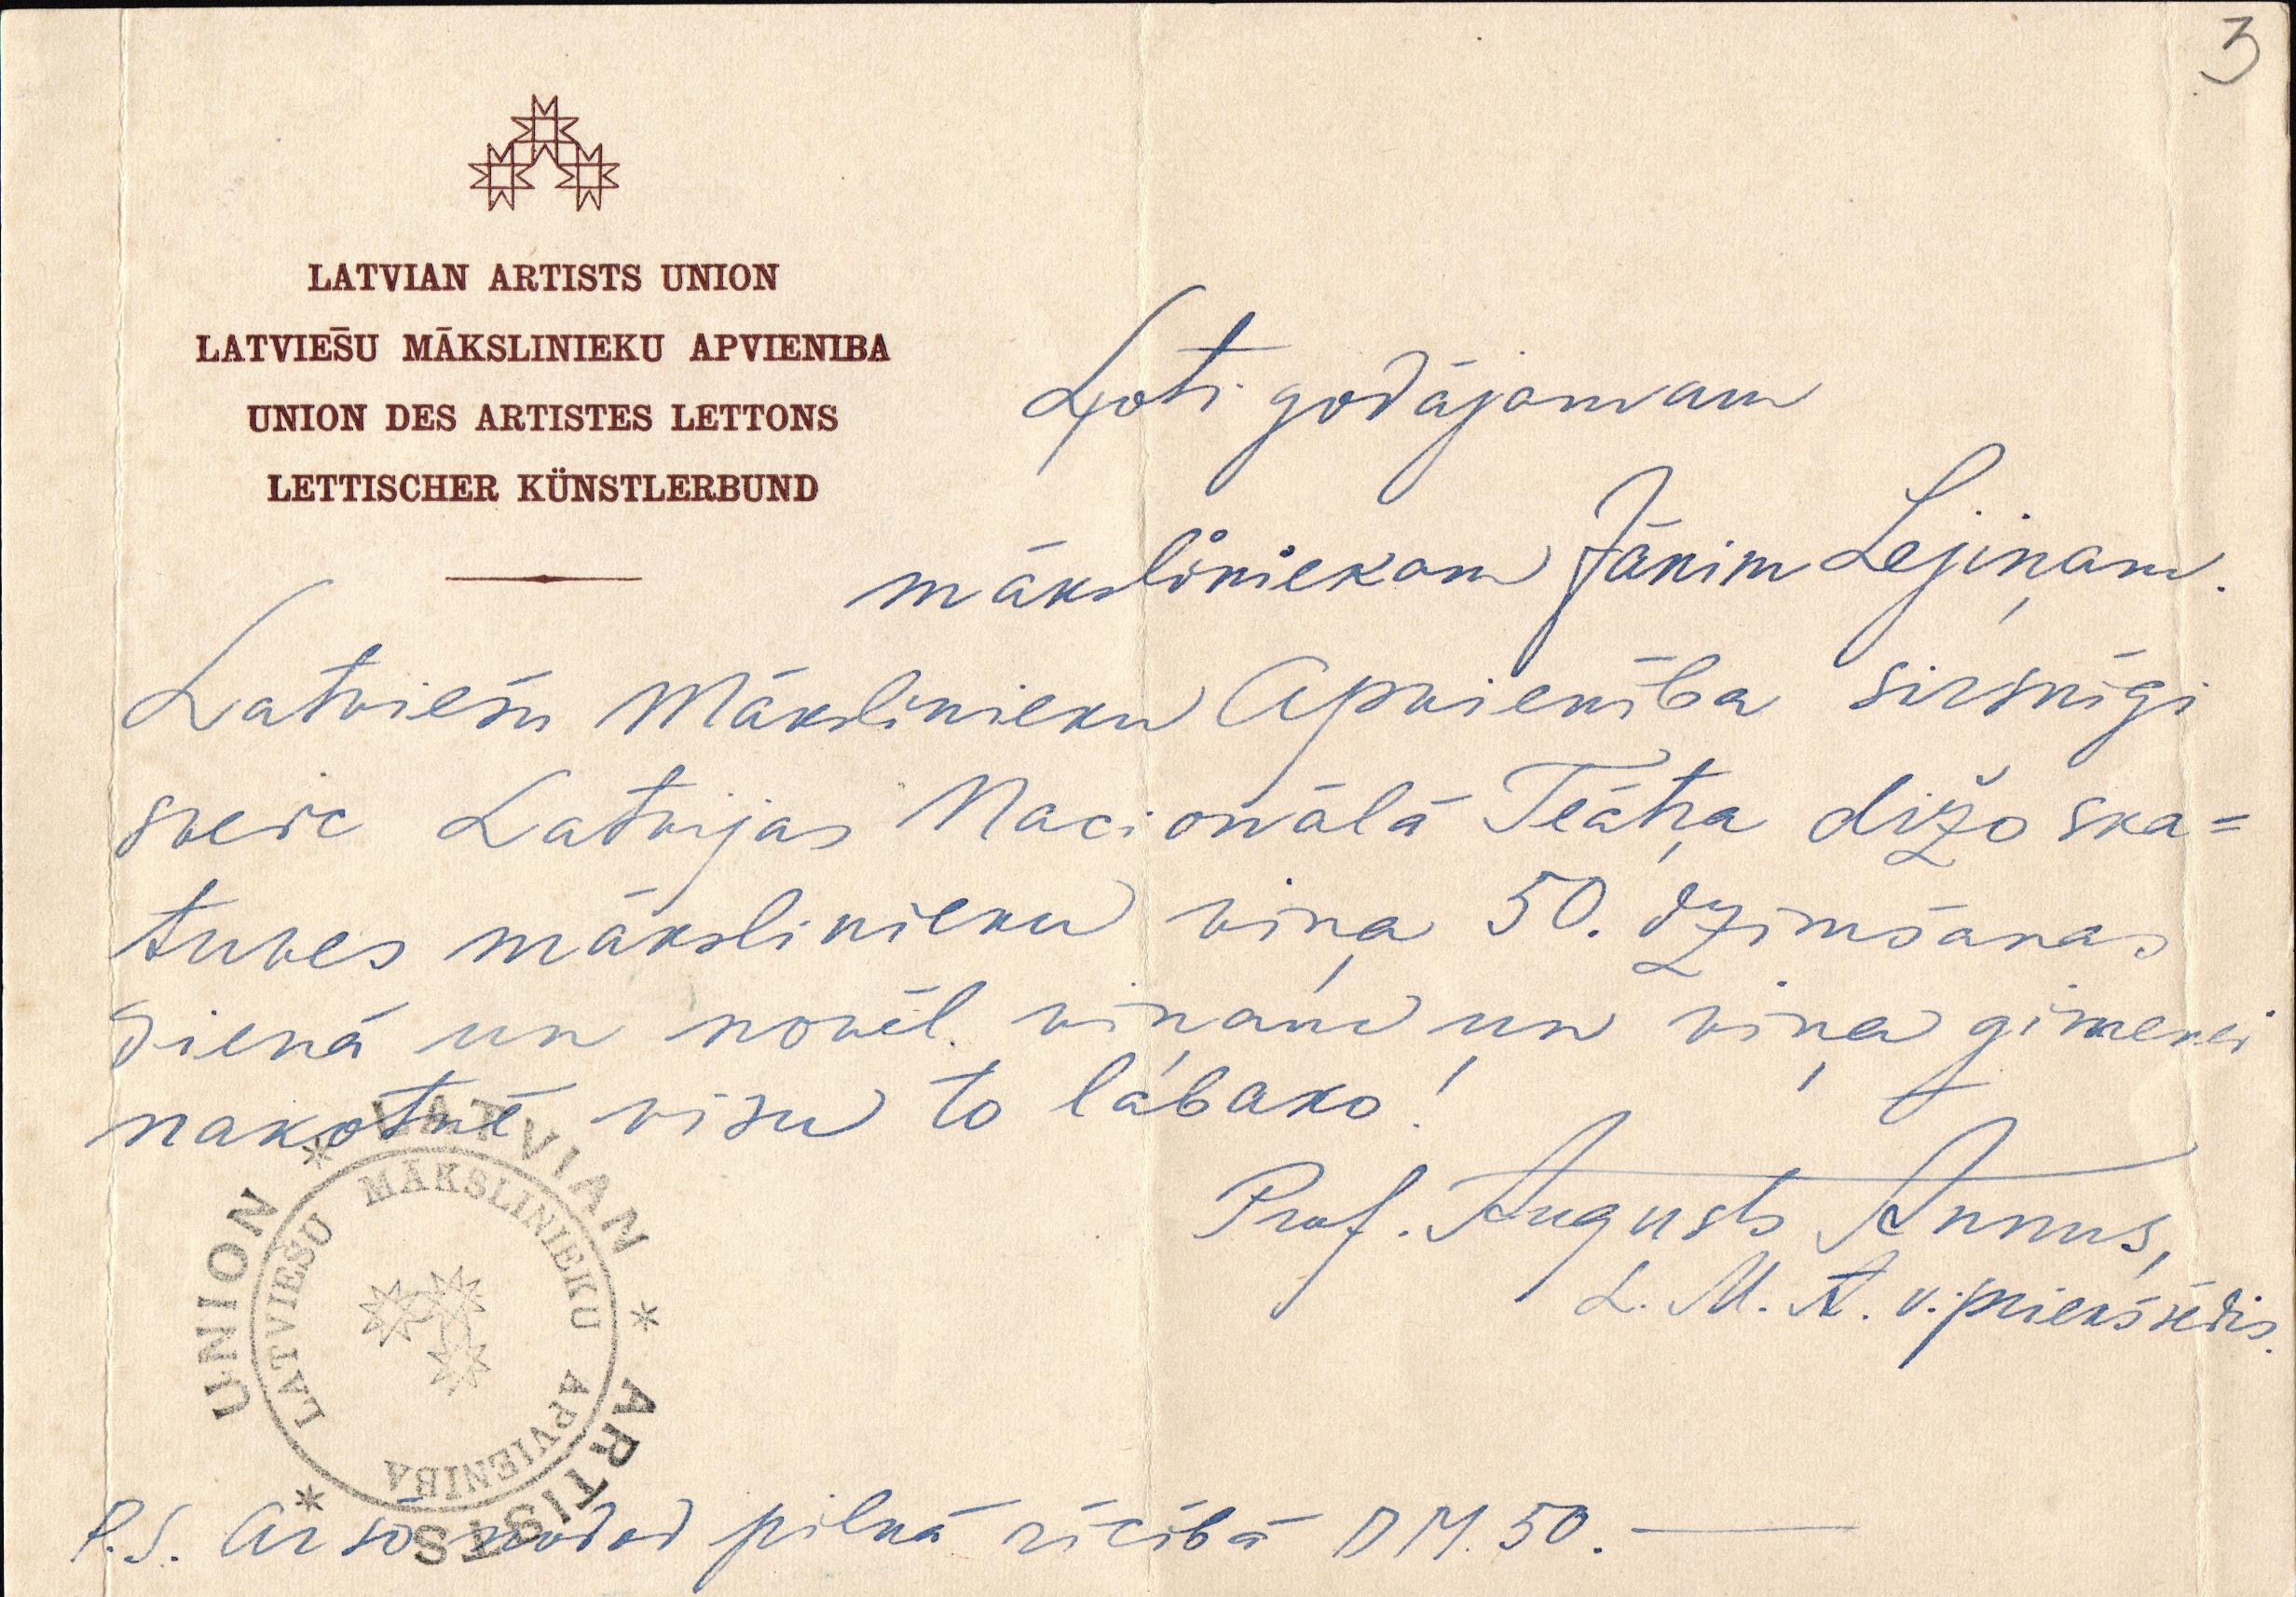 3
LATVIAN ARTISTS UNION
LATVIEŠU MĀKSLINIEKU APVIENIBA
UNION DES ARTISTES LETTONS
LETTISCHER KÜNSTLERBUND
Ļoti godājamam
māksliniekam Jānim Lejiņam.
Latviešu Mākslinieku Apvienība sirsnīgi
sveic Latvijas Nacionālā Teātŗa dižo ska=
tuves mākslinieku viņa 50. dzimšanas
dienā un novēl viņam un viņa gimenei
nakotnē visu to lābako!
Prof. Augusts Annus,
L. M. A. v. priekšsēdis.
LATVIAN * ARTISTS * UNION *
LATVIEŠU MĀKSLINIEKU APVIENIBA
P.S. Ar šo nodod pilnā rīcībā DM. 50.—